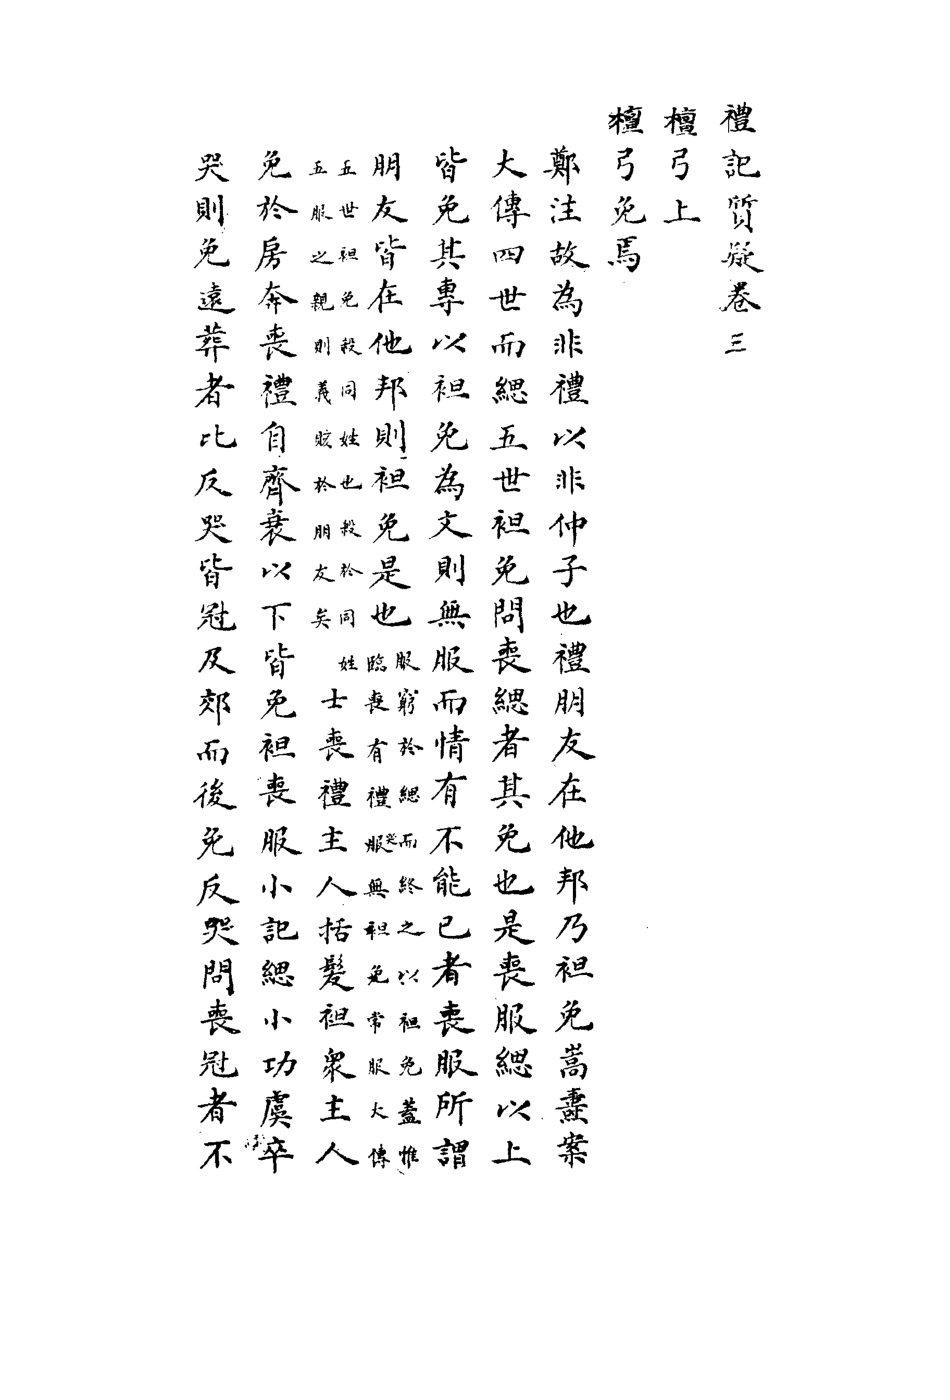 禮記質疑卷三
檀弓上
檀弓免焉
鄭注故為非禮以非仲子也禮朋友在他邦乃袒免嵩燾案
大傳四世而緦五世袒免問喪緦者其免也是喪服緦以上
皆免其專以袒免為文則無服而情有不能已者喪服所謂
朋友皆在他邦則袒免是也
服窮於緦而終之以袒免蓋惟
臨喪有禮服無袒免常服大傳
五世袒免殺同姓也殺於同姓
五服之親則義賅於朋友矣
士喪禮主人括髮袒衆主人
免於房奔喪禮自齊衰以下皆免袒喪服小記緦小功虞卒
哭則免遠葬者比反哭皆冠及郊而後免反哭問喪冠者不